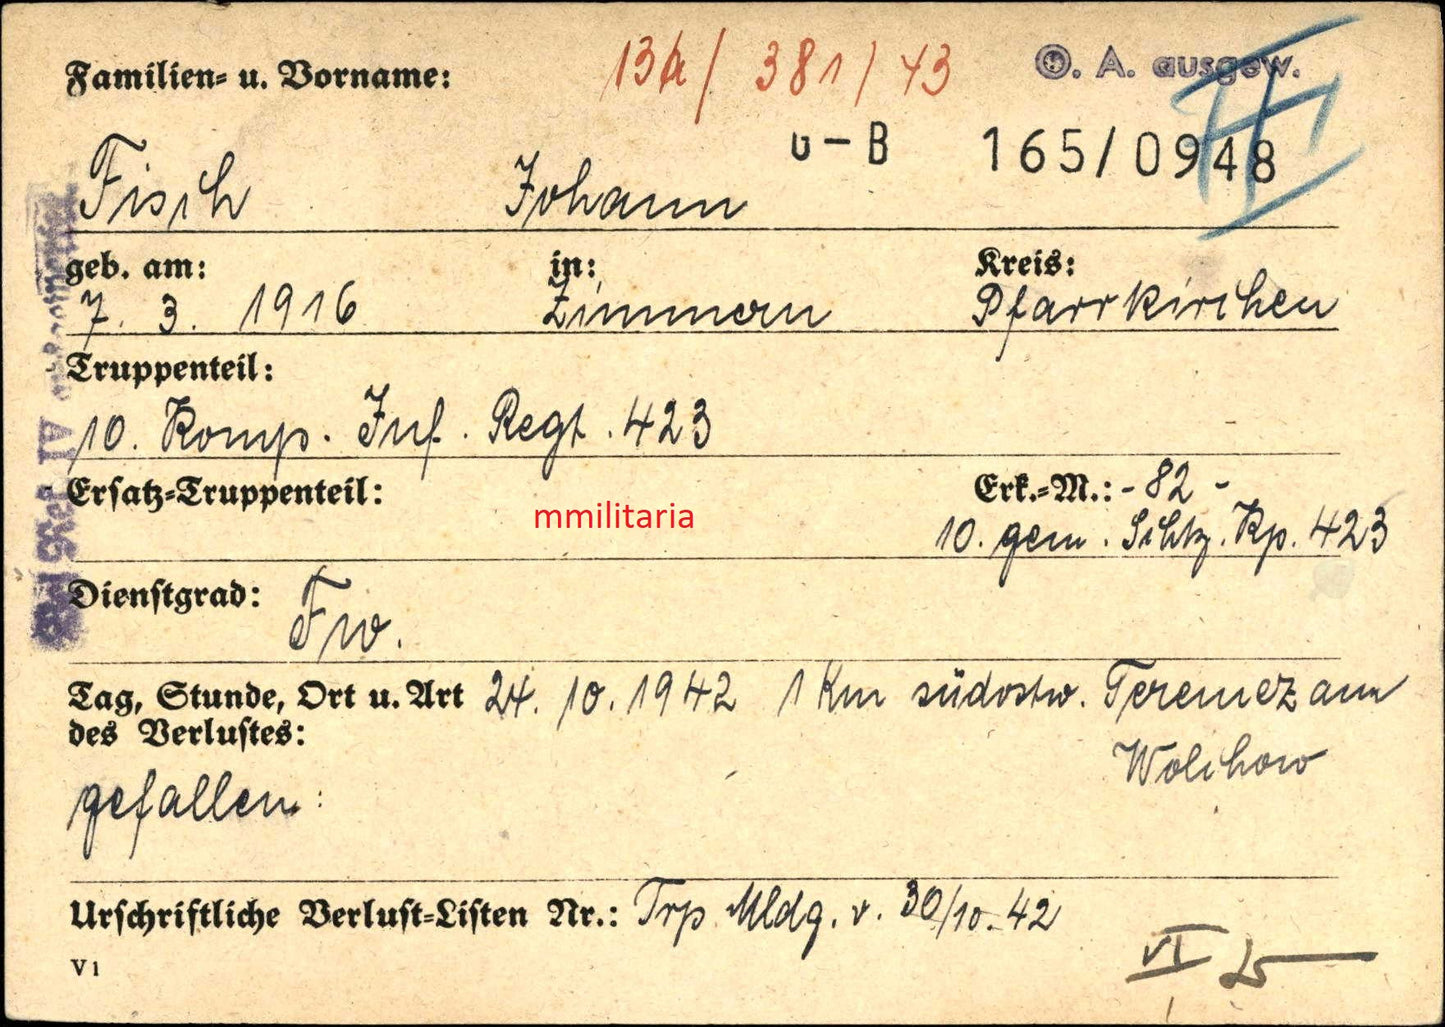 Familien- u. Vorname:
13A/ 381/43
O. A. ausgew.
G-B 165/0948
Fisch Johann
geb. am: in: Kreis:
7. 3. 1916 Zimmern Pfarrkirchen
Truppenteil:
10. Komp. Inf. Regt. 423
Ersatz-Truppenteil: Erk.-M.: - 82 -
mmilitaria
10. gem. Schtz. Kp. 423
Dienstgrad: Fw.
Tag, Stunde, Ort u. Art 24. 10. 1942 1 Km südostw. Teremez am
des Verlustes: Wolchow
gefallen:
Urschriftliche Verlust-Listen Nr.: Trp Mldg. v. 30/10.42
V 1
VI